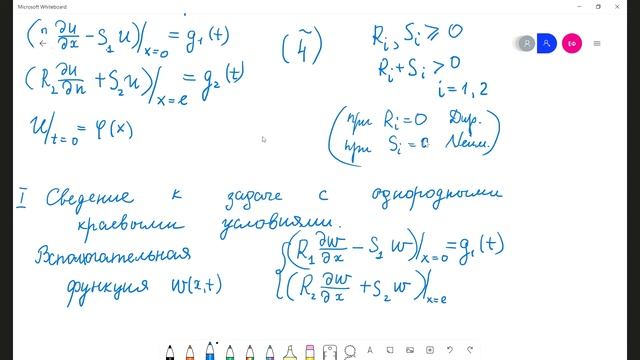 Microsoft Whiteboard
(R₁ ∂u/∂x − S₁ u)|ₓ₌₀ = g₁(t)
(4̃)
Rᵢ, Sᵢ ⩾ 0
(R₂ ∂u/∂n + S₂ u)|ₓ₌ₑ = g₂(t)
Rᵢ + Sᵢ > 0
i = 1, 2
u|ₜ₌₀ = φ(x)
(при Rᵢ = 0 Дир.
при Sᵢ = 0 Нейм.)
I Сведение к задаче с однородными
краевыми условиями.
Вспомогательная
функция w(x,t)
{(R₁ ∂w/∂x − S₁ w)|ₓ₌₀ = g₁(t)
(R₂ ∂w/∂x + S₂ w)|ₓ₌ₑ